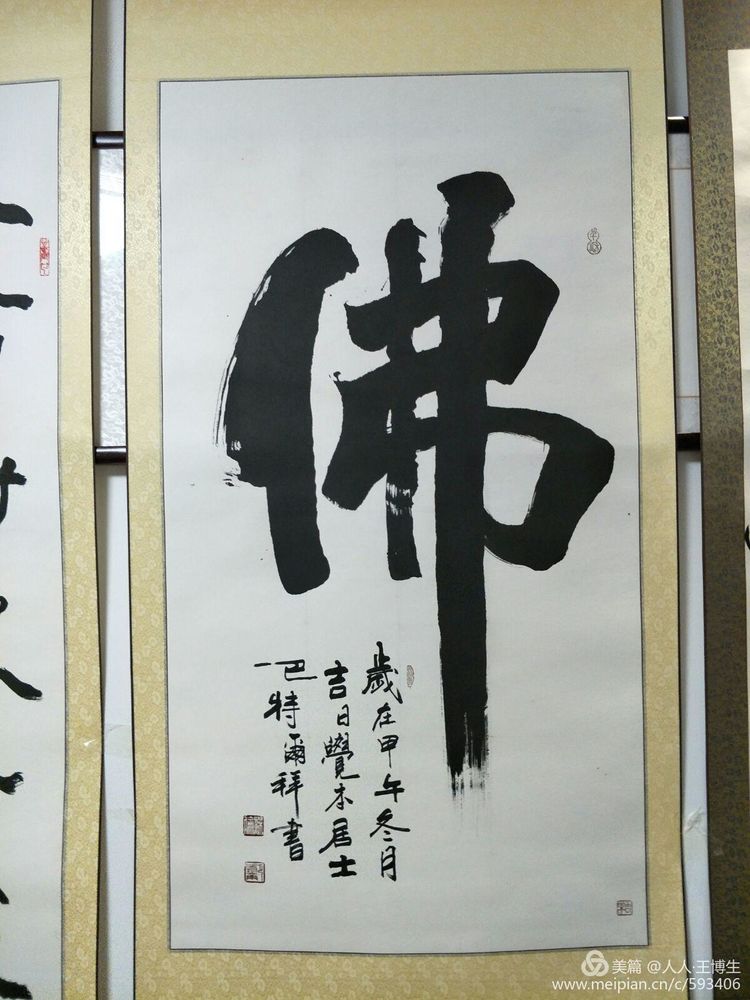 佛
歲在甲午冬月
吉日覺本居士
巴特爾拜書
美篇 @人人·王博生
www.meipian.cn/c/593406